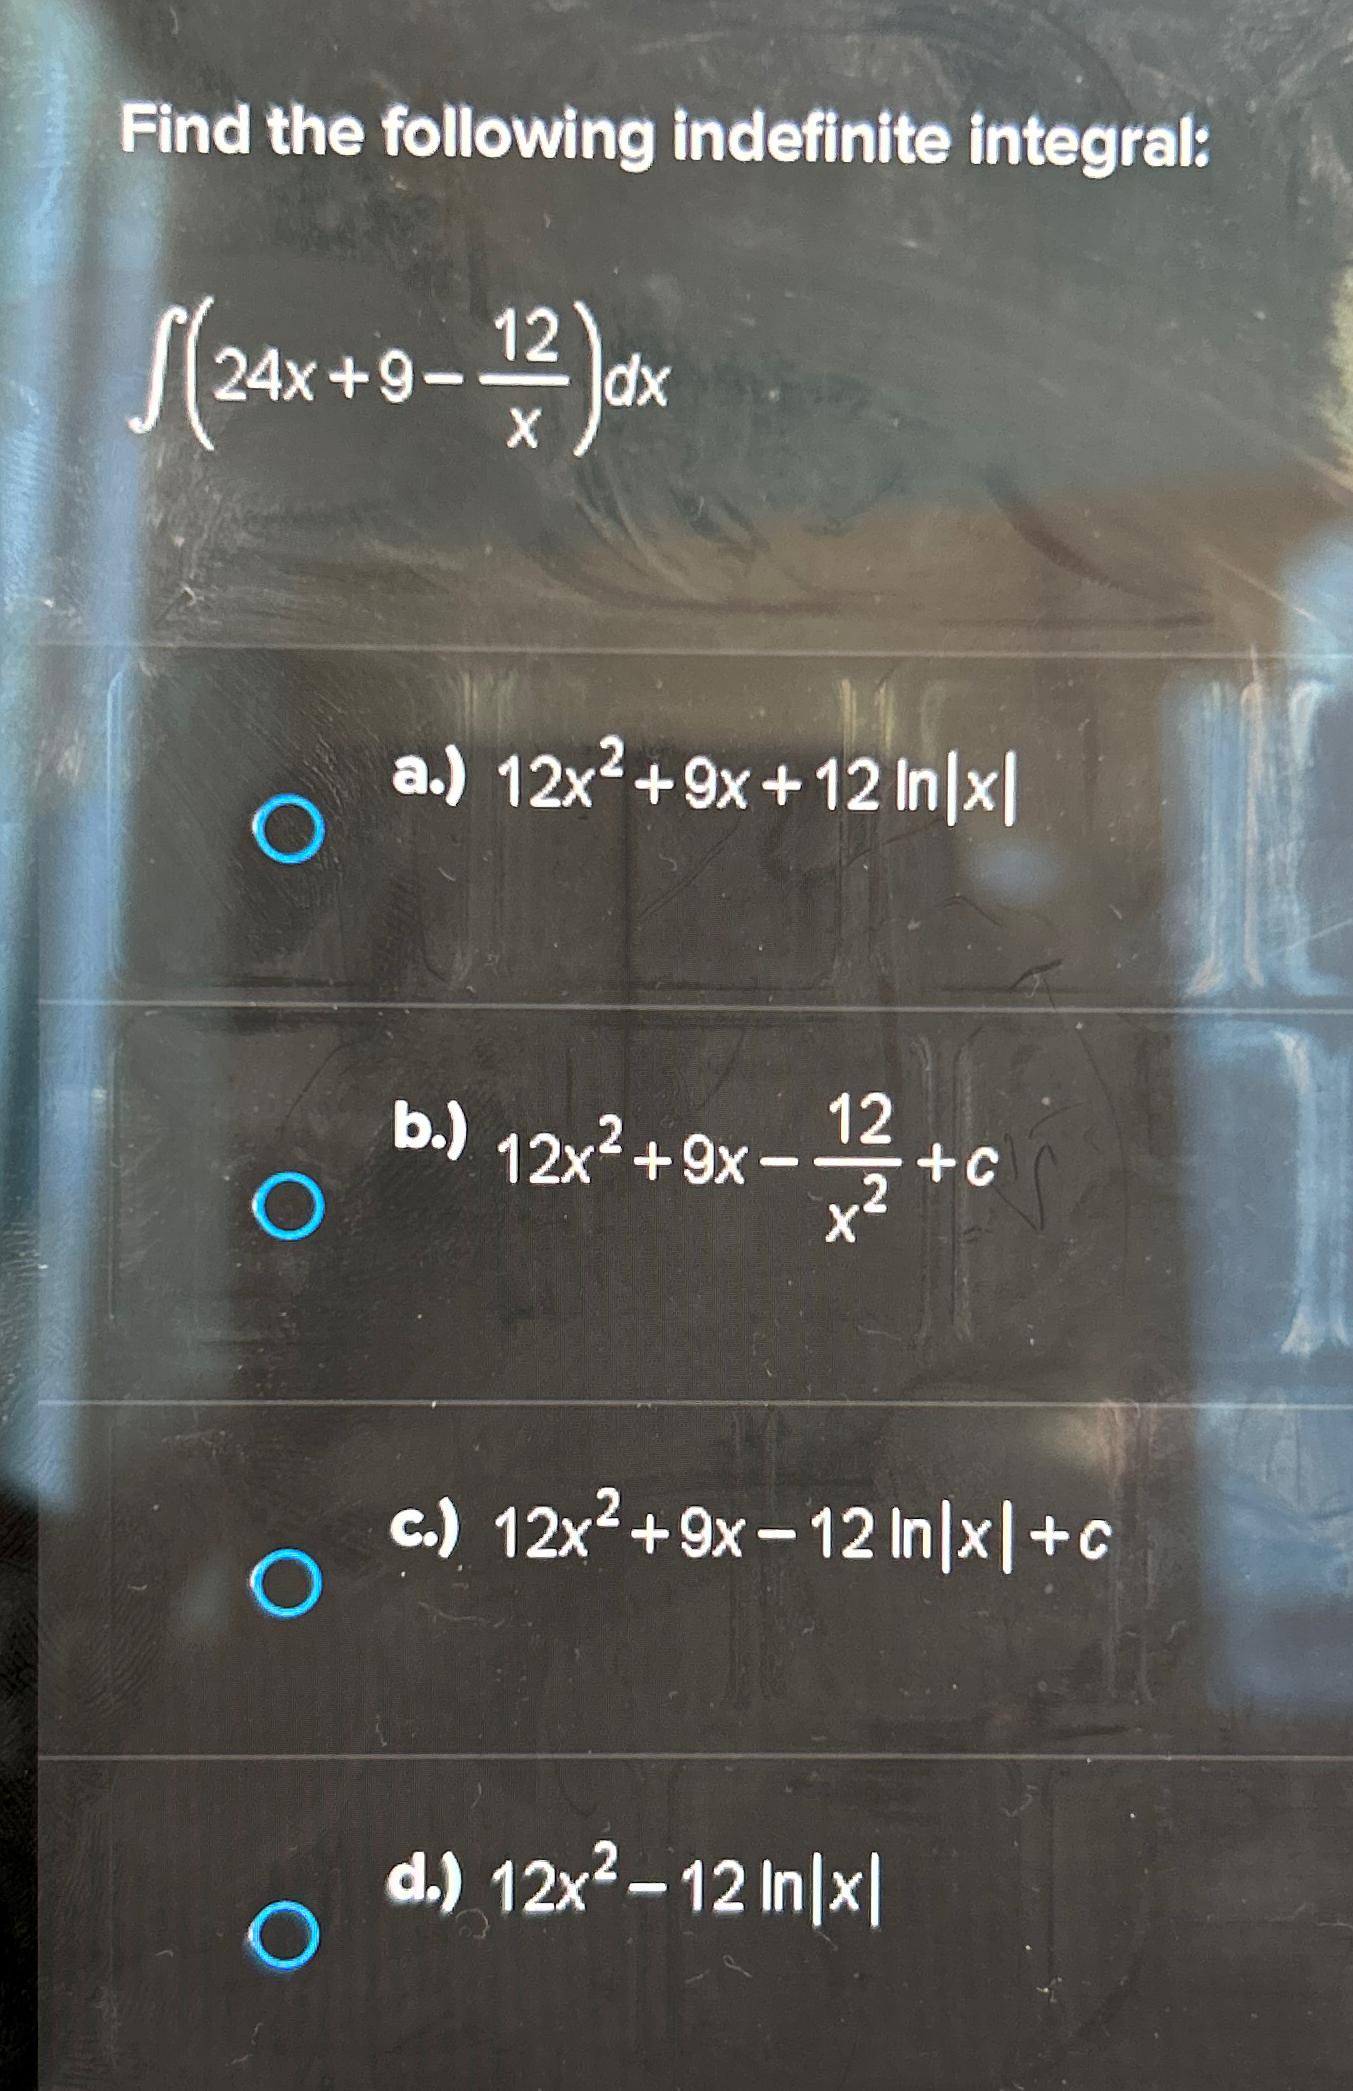 Find the following indefinite integral:
∫(24x+9−12/x)dx
a.) 12x²+9x+12 ln|x|
b.) 12x²+9x−12/x²+c
c.) 12x²+9x−12 ln|x|+c
d.) 12x²−12 ln|x|